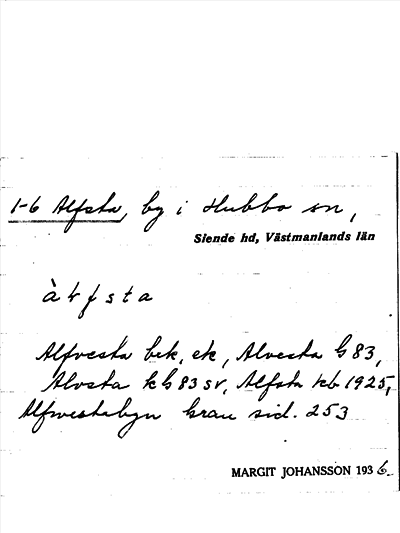 1-6 Alfsta, by i Hubbo sn,
Siende hd, Västmanlands län
à l f s t a
Alfvesta bek, ek, Alvesta G83,
Alvsta kG83 sv, Alfsta kb 1925,
Alfvestabyn Grau sid. 253
MARGIT JOHANSSON 1936